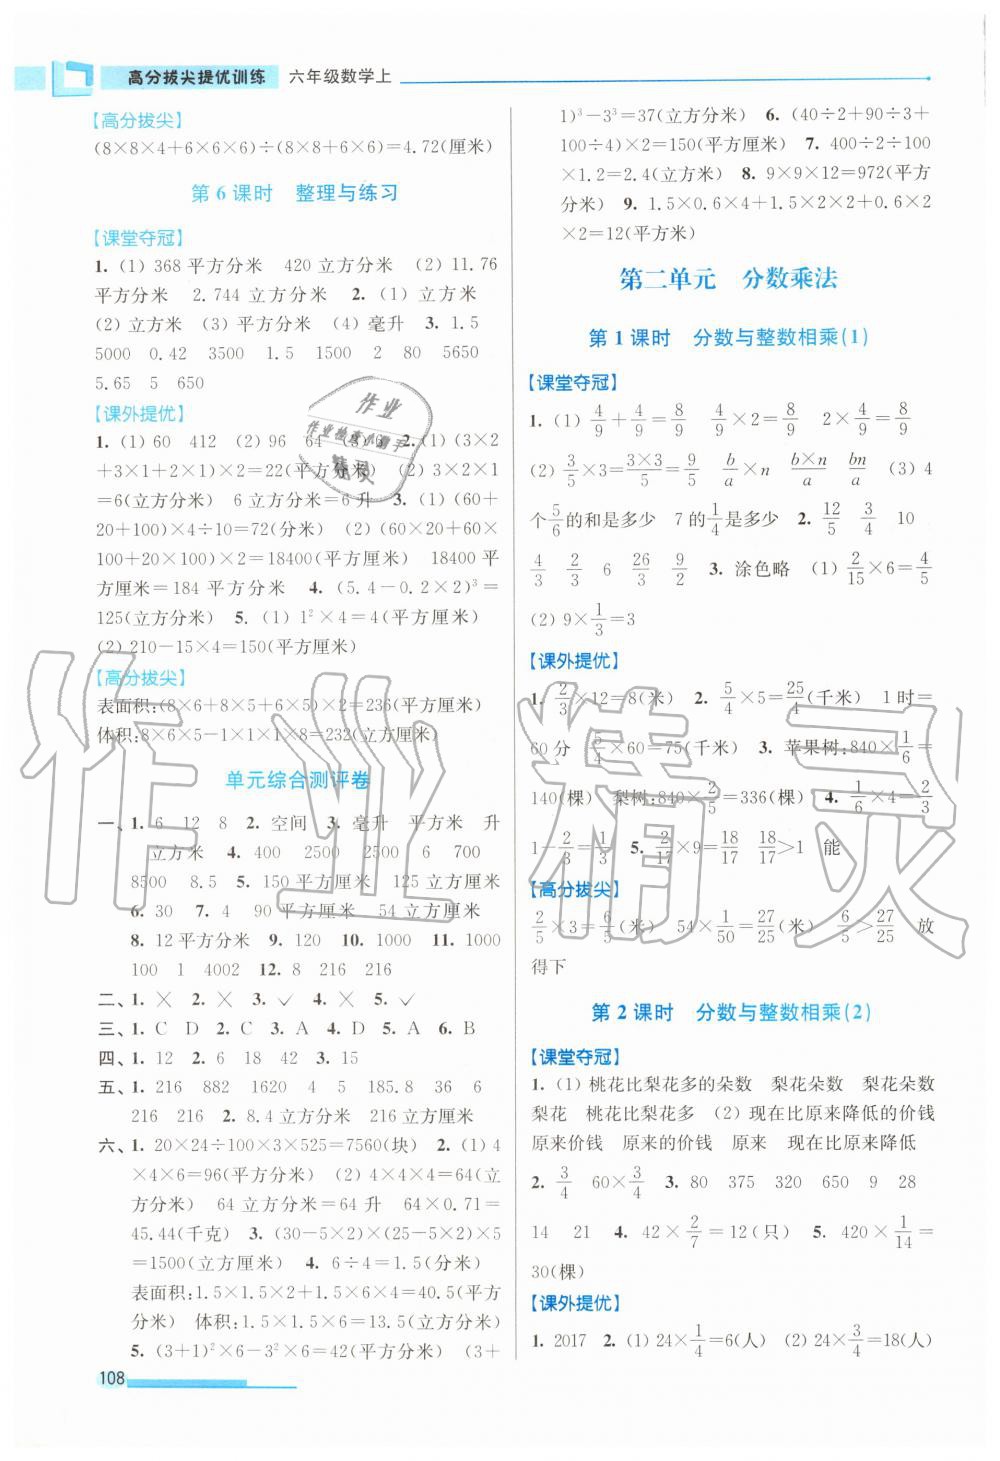 高分拔尖提优训练 六年级数学上
【高分拔尖】
(8×8×4+6×6×6)÷(8×8+6×6)=4.72(厘米)
第 6 课时 整理与练习
【课堂夺冠】
1. (1) 368 平方分米 420 立方分米 (2) 11.76
平方分米 2.744 立方分米 2. (1) 立方米
(2) 立方分米 (3) 平方分米 (4) 毫升 3. 1.5
5000 0.42 3500 1.5 1500 2 80 5650
5.65 5 650
【课外提优】
1. (1) 60 412 (2) 96 64 (3) 6 2. (1) (3×2
+3×1+2×1)×2=22(平方分米) (2) 3×2×1
=6(立方分米) 6 立方分米=6 升 3. (1) (60+
20+100)×4÷10=72(分米) (2) (60×20+60×
100+20×100)×2=18400(平方厘米) 18400 平
方厘米=184 平方分米 4. (5.4-0.2×2)³=
125(立方分米) 5. (1) 1²×4=4(平方厘米)
(2) 210-15×4=150(平方厘米)
【高分拔尖】
表面积:(8×6+8×5+6×5)×2=236(平方厘米)
体积:8×6×5-1×1×1×8=232(立方厘米)
单元综合测评卷
一、1. 6 12 8 2. 空间 3. 毫升 平方米 升
立方米 4. 400 2500 2500 6 700
8500 8.5 5. 150 平方厘米 125 立方厘米
6. 30 7. 4 90 平方厘米 54 立方厘米
8. 12 平方分米 9. 120 10. 1000 11. 1000
100 1 4002 12. 8 216 216
二、1. × 2. × 3. ✓ 4. × 5. ✓
三、1. C D 2. C 3. C 4. D 5. A 6. B
四、1. 12 2. 6 18 42 3. 15
五、1. 216 882 1620 4 5 185.8 36 6
216 216 2. 8.4 立方分米 216 立方厘米
六、1. 20×24÷100×3×525=7560(块) 2. (1) 4
×4×6=96(平方分米) (2) 4×4×4=64(立
方分米) 64 立方分米=64 升 64×0.71=
45.44(千克) 3. (30-5×2)×(25-5×2)×5
=1500(立方厘米) 4. 6÷4=1.5(分米)
表面积:1.5×1.5×2+1.5×6×4=40.5(平方
分米) 体积:1.5×1.5×6=13.5(立方分米)
5. (3+1)²×6-3²×6=42(平方分米) (3+
1)³-3³=37(立方分米) 6. (40÷2+90÷3+
100÷4)×2=150(平方厘米) 7. 400÷2÷100
×1.2=2.4(立方米) 8. 9×9×12=972(平方
分米) 9. 1.5×0.6×4+1.5×2×2+0.6×2
×2=12(平方米)
第二单元 分数乘法
第 1 课时 分数与整数相乘(1)
【课堂夺冠】
1. (1) 4/9+4/9=8/9 4/9×2=8/9 2×4/9=8/9
(2) 3/5×3=3×3/5=9/5 b/a×n b×n/a bn/a (3) 4
个5/6的和是多少 7 的1/4是多少 2. 12/5 3/4 10
4/3 2/3 6 26/3 9/2 3. 涂色略 (1) 2/15×6=4/5
(2) 9×1/3=3
【课外提优】
1. 2/3×12=8(米) 2. 5/4×5=25/4(千米) 1 时=
60 分 5/4×60=75(千米) 3. 苹果树:840×1/6=
140(棵) 梨树:840×2/5=336(棵) 4. 1/6×4=2/3
1-2/3=1/3 5. 2/17×9=18/17 18/17>1 能
【高分拔尖】
2/5×3=6/5(米) 54×1/50=27/25(米) 6/5>27/25 放
得下
第 2 课时 分数与整数相乘(2)
【课堂夺冠】
1. (1) 桃花比梨花多的朵数 梨花朵数 梨花朵数
梨花 桃花比梨花多 (2) 现在比原来降低的价钱
原来价钱 原来的价钱 原来 现在比原来降低
2. 3/4 60×3/4 3. 80 375 320 650 9 28
14 21 4. 42×2/7=12(只) 5. 420×1/14=
30(棵)
【课外提优】
1. 2017 2. (1) 24×1/4=6(人) (2) 24×3/4=18(人)
108
作业精灵